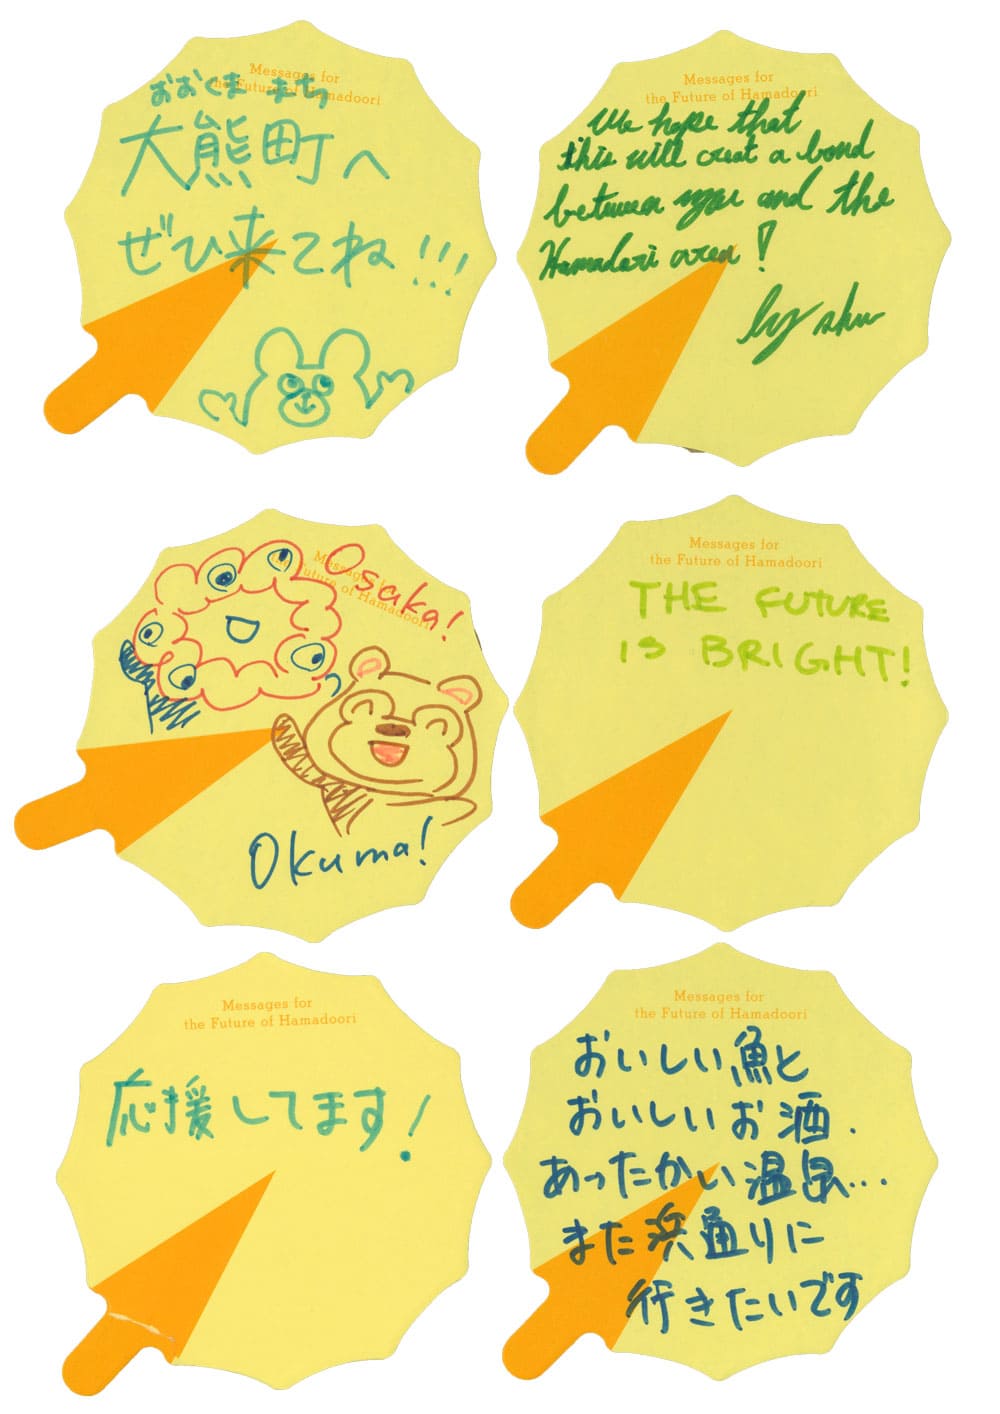 Messages for
the Future of Hamadoori
おおくま まち
大熊町へ
ぜひ来てね!!!
Messages for
the Future of Hamadoori
We hope that
this will creat a bond
between you and the
Hamadori area!
by shu
Messages for
the Future of Hamadoori
Osaka!
Okuma!
Messages for
the Future of Hamadoori
THE FUTURE
IS BRIGHT!
Messages for
the Future of Hamadoori
応援してます!
Messages for
the Future of Hamadoori
おいしい魚と
おいしいお酒.
あったかい温泉...
また浜通りに
行きたいです